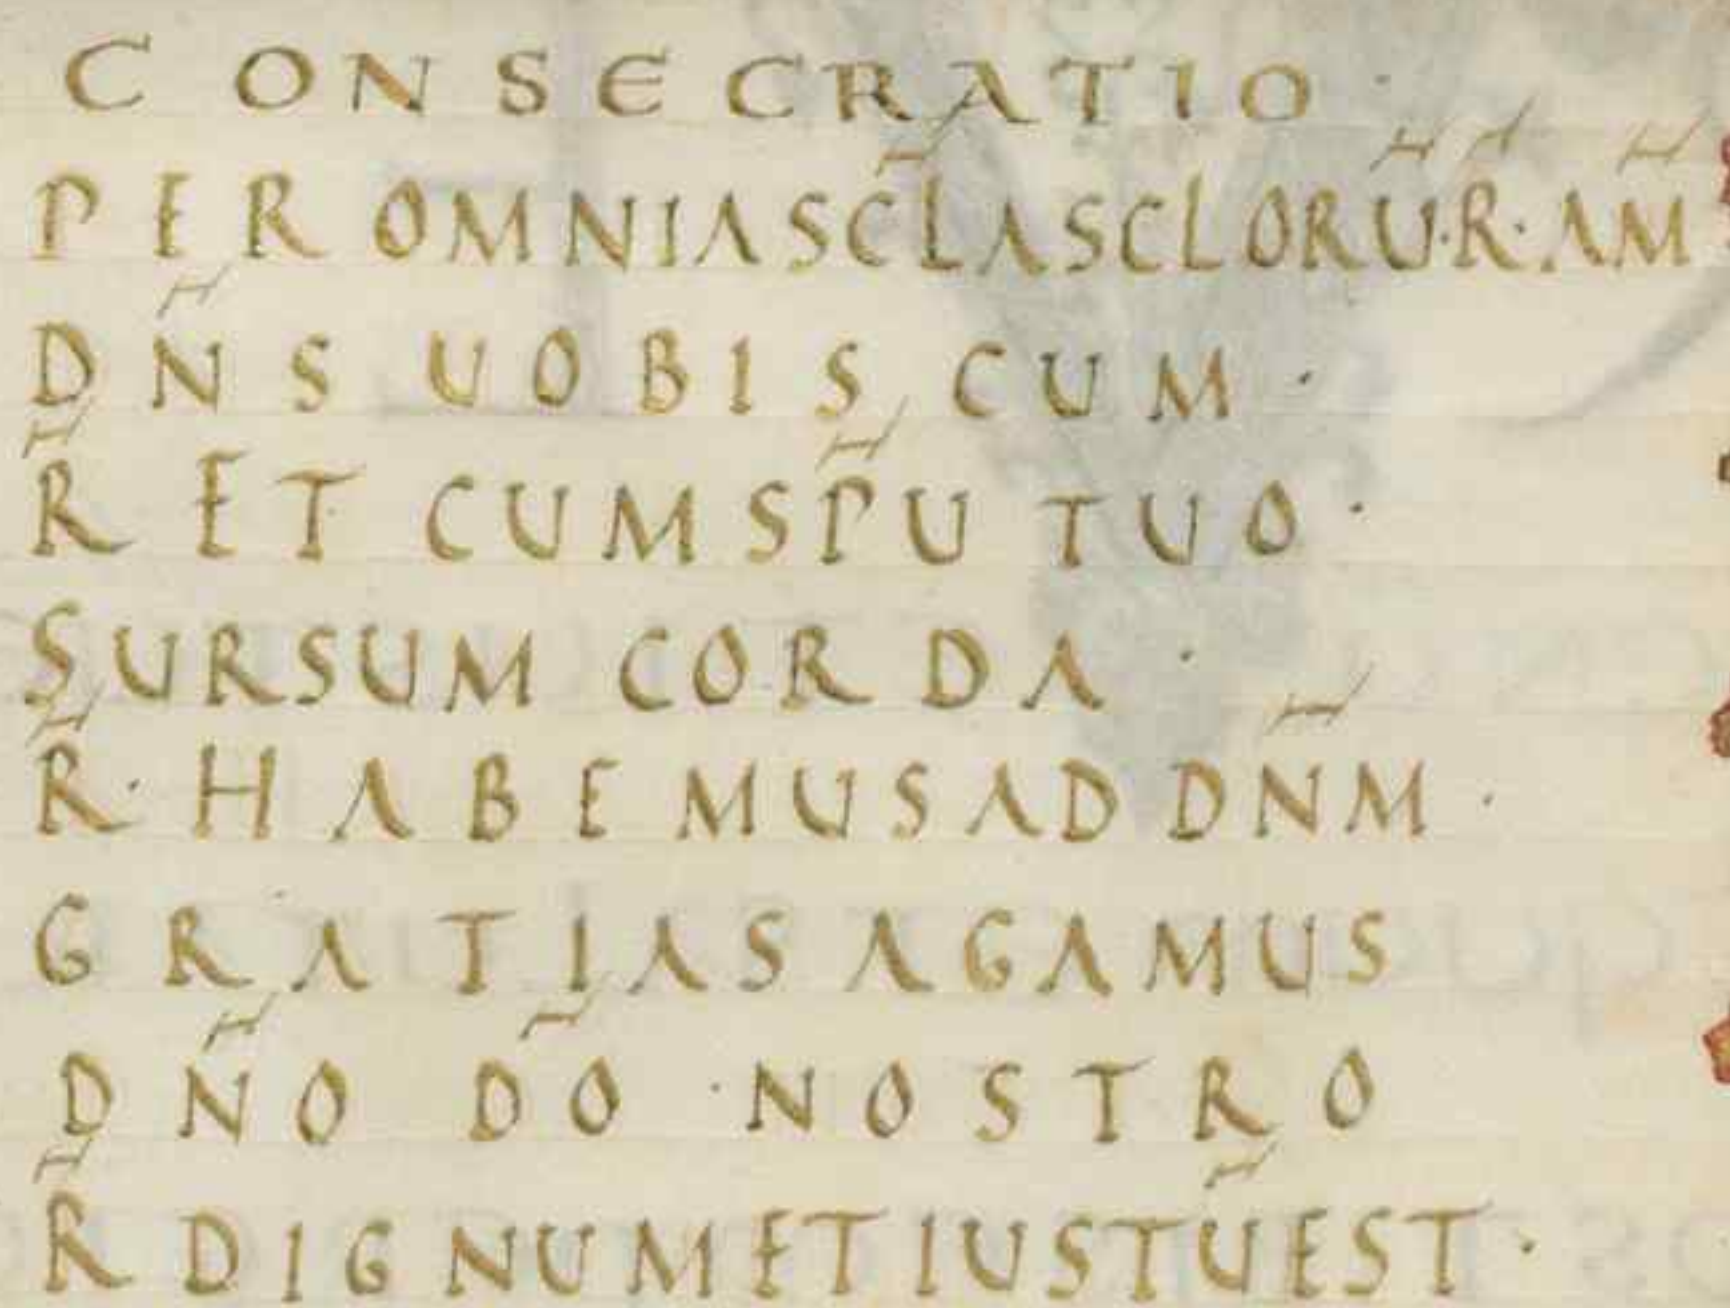 CONSECRATIO ·
PER OMNIA SC̄LA SCLORŪ · R̄ · AM̄
DN̄S UOBISCUM ·
R̄ ET CUM SP̄U TUO ·
SURSUM CORDA ·
R̄ · HABEMUS AD DN̄M ·
GRATIAS AGAMUS
DN̄O DŌ · NOSTRO
R̄ DIGNUM ET IUSTŪ EST ·